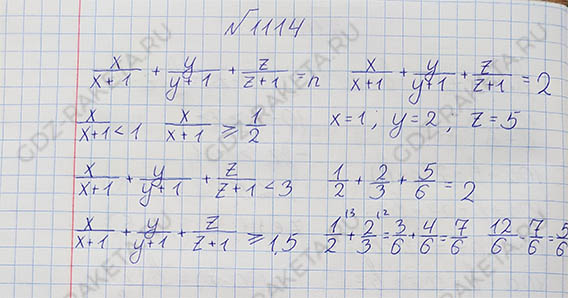 №1114
x/(x+1) + y/(y+1) + z/(z+1) = n   x/(x+1) + y/(y+1) + z/(z+1) = 2
x/(x+1) < 1   x/(x+1) ⩾ 1/2   x=1; y=2; z=5
x/(x+1) + y/(y+1) + z/(z+1) < 3   1/2 + 2/3 + 5/6 = 2
x/(x+1) + y/(y+1) + z/(z+1) ⩾ 1,5   1/2 ⁽³ + 2/3 ⁽² = 3/6 + 4/6 = 7/6   12/6 - 7/6 = 5/6
GDZ-RAKETA.RU